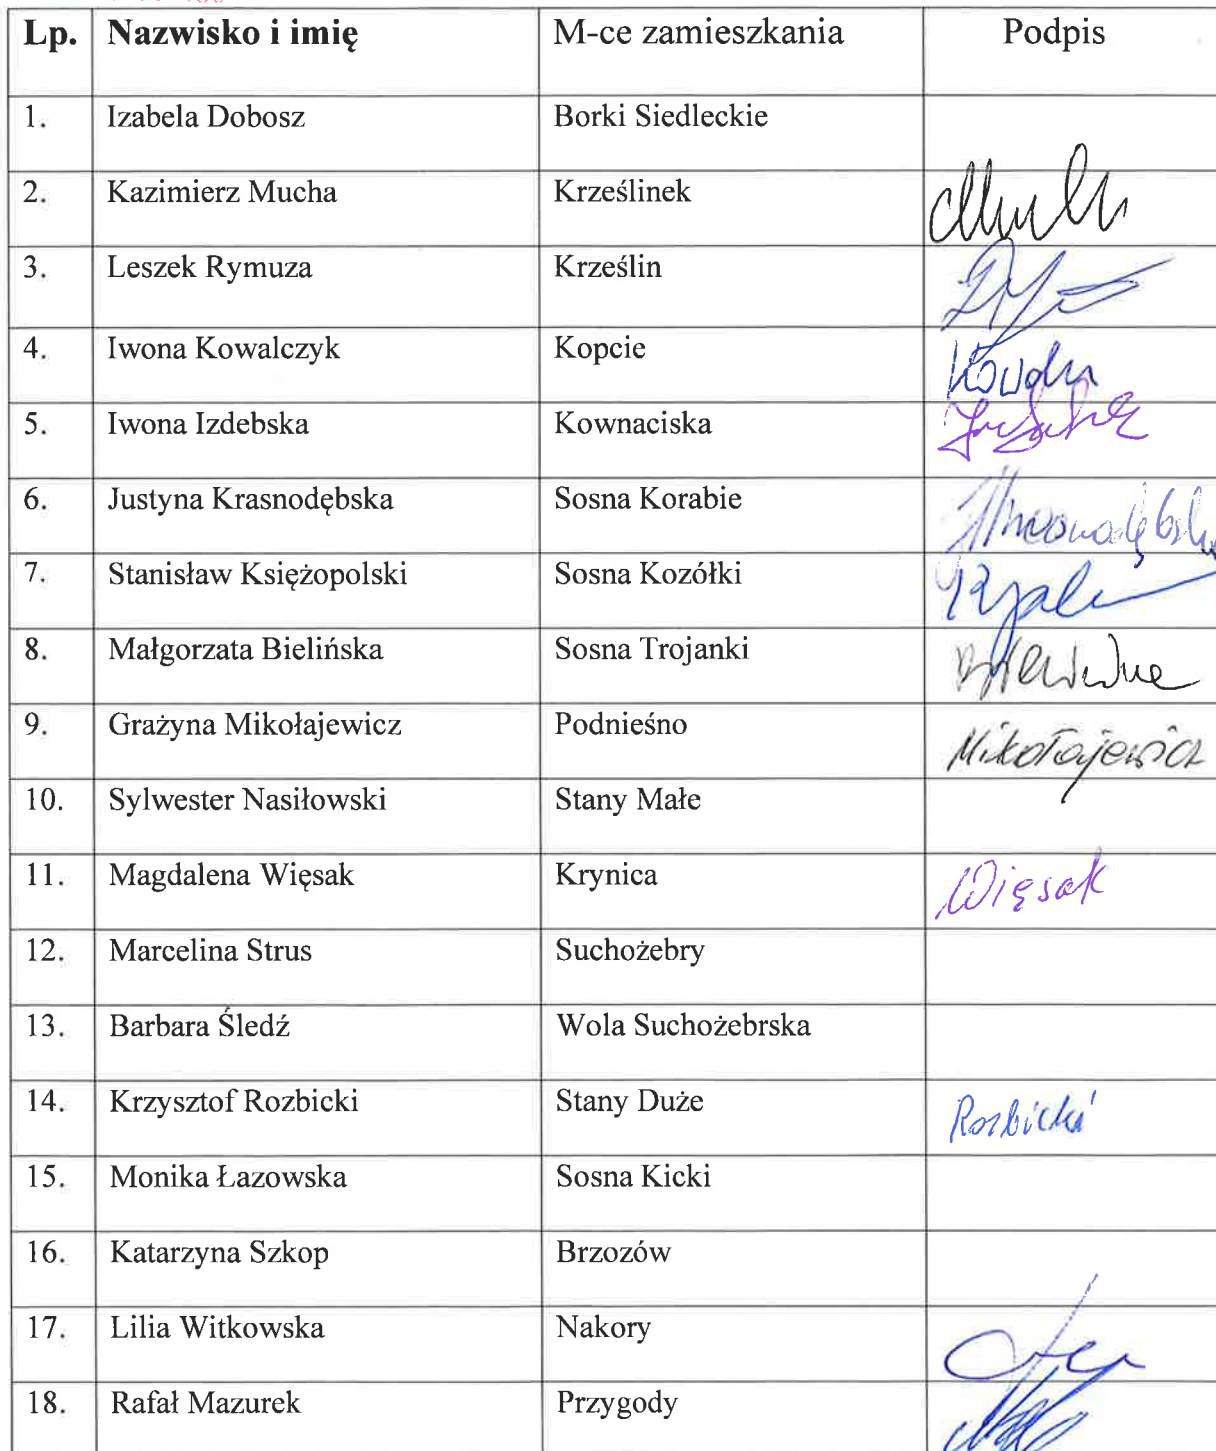 Lp. Nazwisko i imię M-ce zamieszkania Podpis
1. Izabela Dobosz Borki Siedleckie
2. Kazimierz Mucha Krześlinek
3. Leszek Rymuza Krześlin
4. Iwona Kowalczyk Kopcie
5. Iwona Izdebska Kownaciska
6. Justyna Krasnodębska Sosna Korabie
7. Stanisław Księżopolski Sosna Kozółki
8. Małgorzata Bielińska Sosna Trojanki
9. Grażyna Mikołajewicz Podnieśno Mikołajewicz
10. Sylwester Nasiłowski Stany Małe
11. Magdalena Więsak Krynica Więsak
12. Marcelina Strus Suchożebry
13. Barbara Śledź Wola Suchożebrska
14. Krzysztof Rozbicki Stany Duże Rozbicki
15. Monika Łazowska Sosna Kicki
16. Katarzyna Szkop Brzozów
17. Lilia Witkowska Nakory
18. Rafał Mazurek Przygody